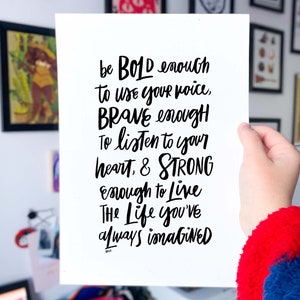 be BOLD enough
to use your voice,
BRAVE enough
TO listen to your
heart, & STRONG
enough to LIVE
THE Life you've
ALWAYS imAGINED